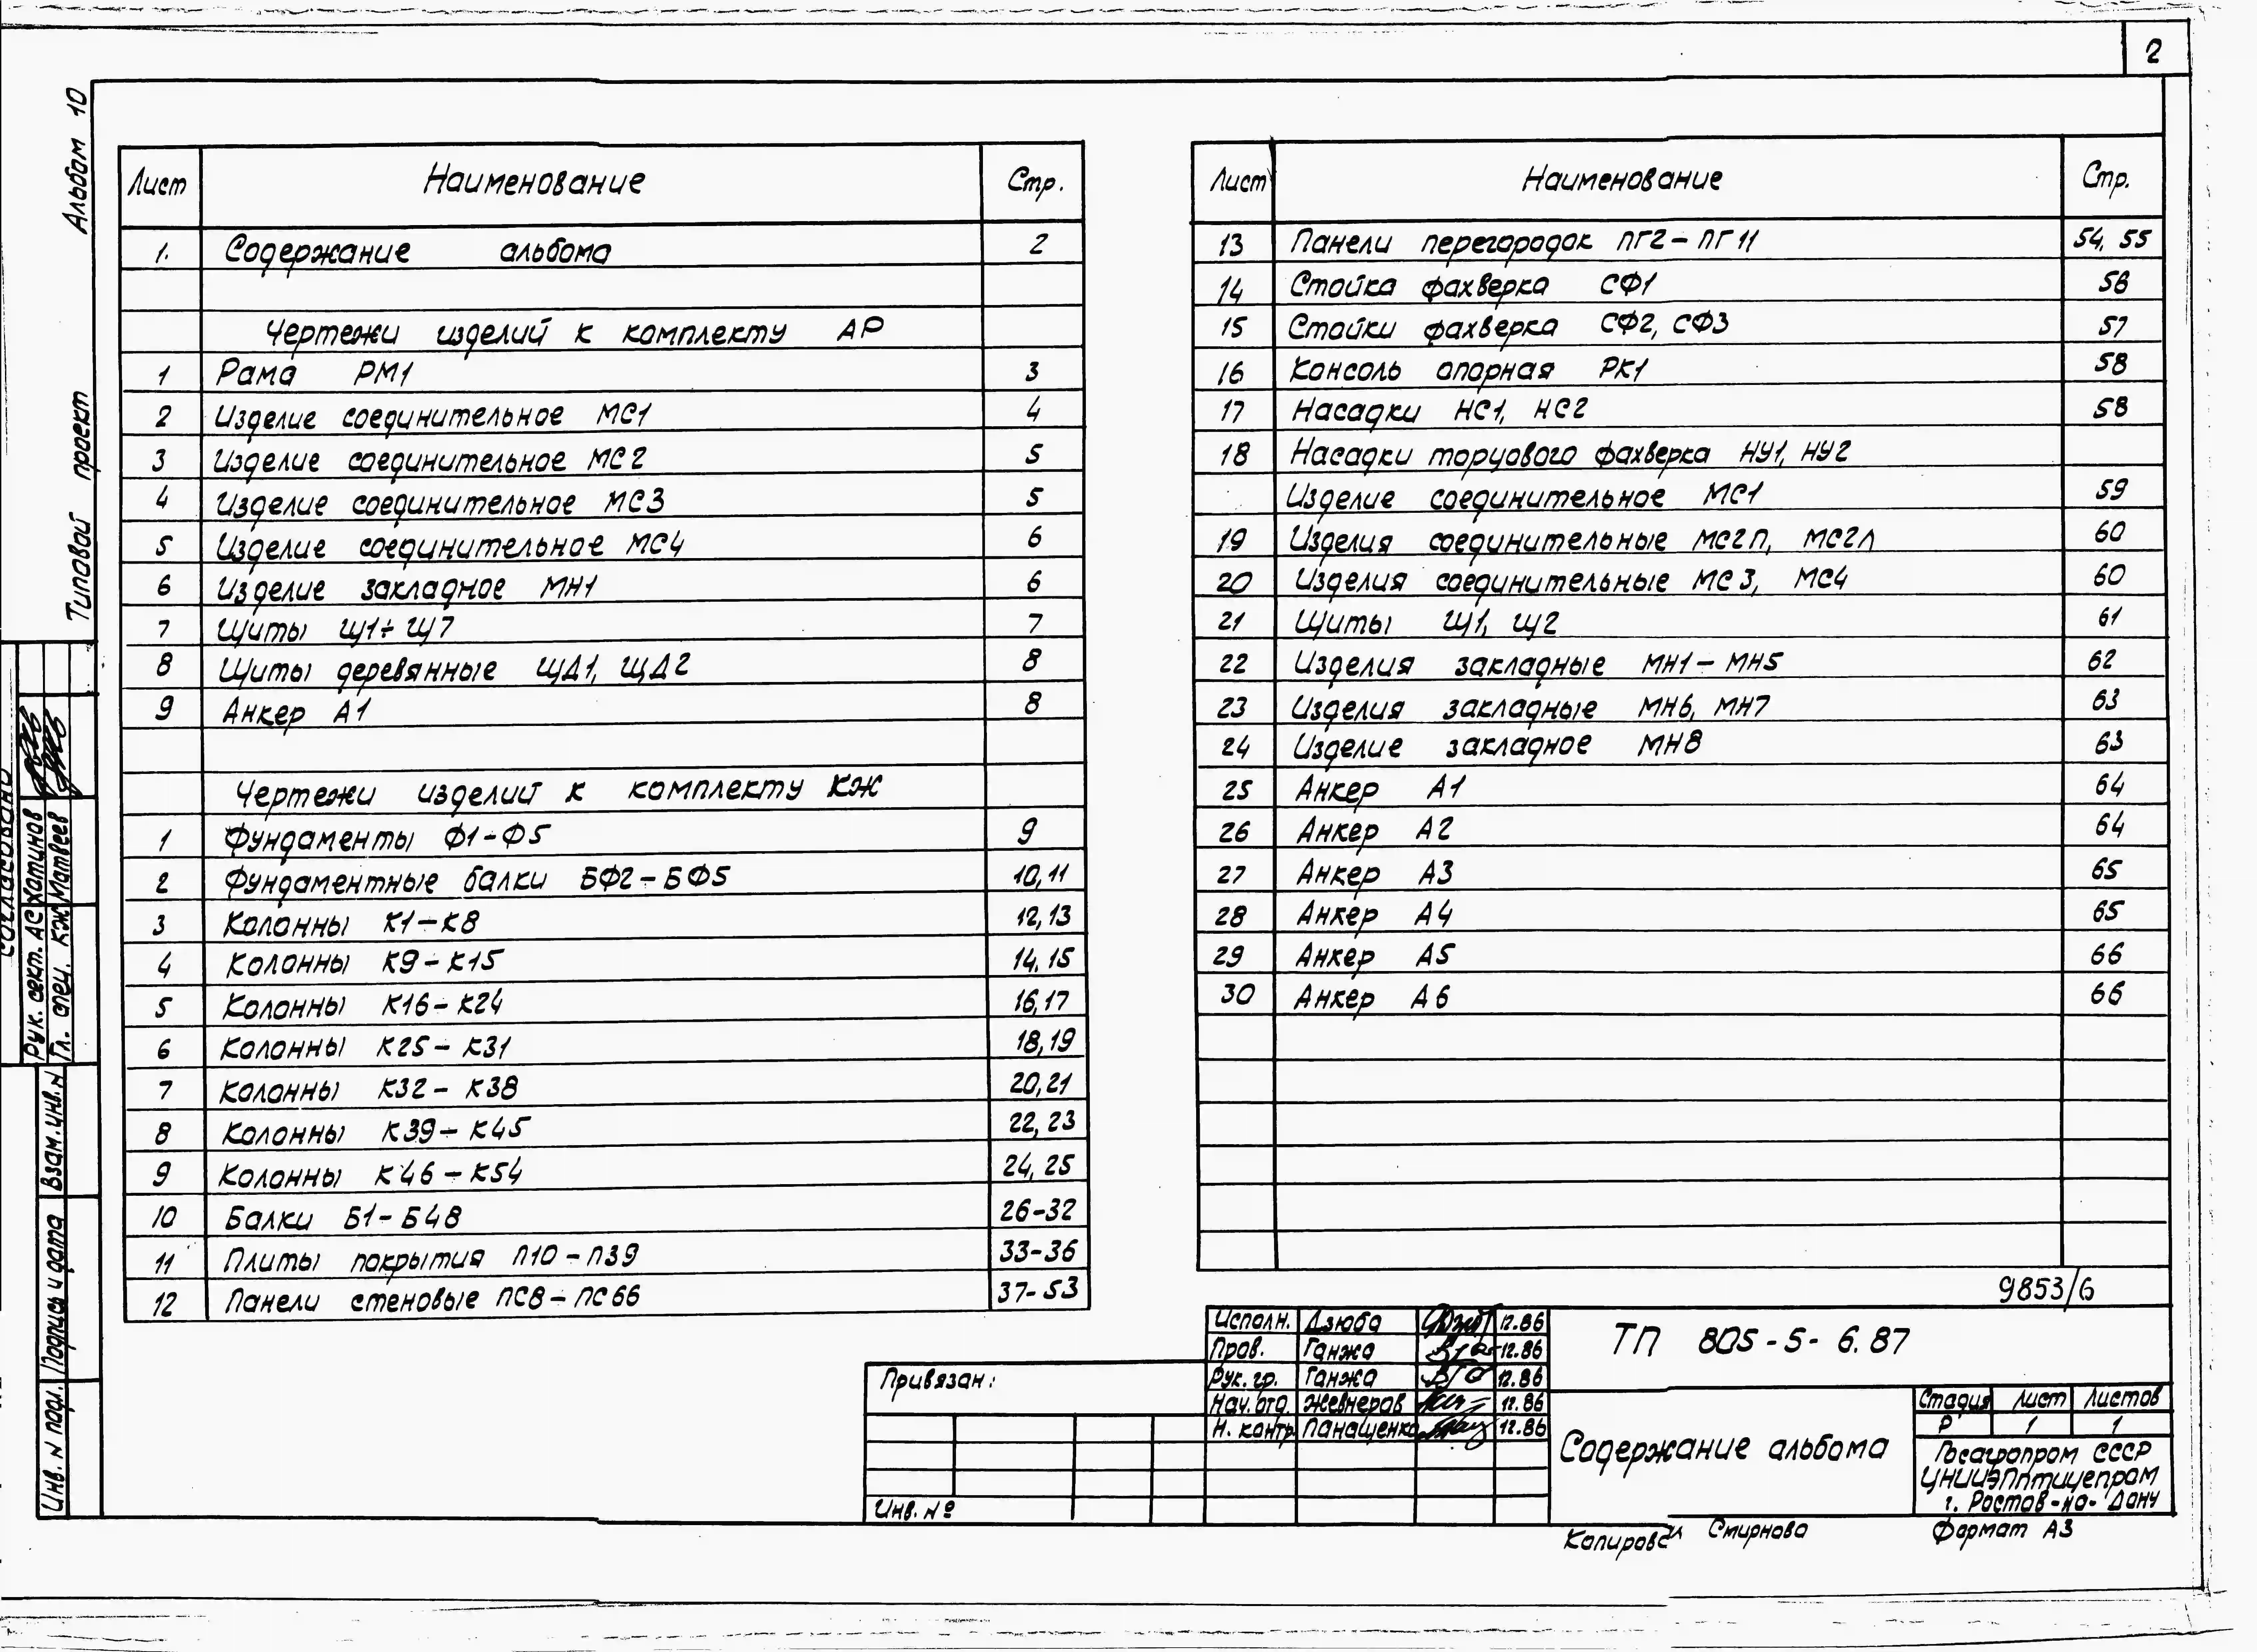 2
Альбом 10
Типовой проект
Лист Наименование Стр.
1. Содержание альбома 2
Чертежи изделий к комплекту АР
1 Рама РМ1 3
2 Изделие соединительное МС1 4
3 Изделие соединительное МС2 5
4 Изделие соединительное МС3 5
5 Изделие соединительное МС4 6
6 Изделие закладное МН1 6
7 Щиты Щ1÷Щ7 7
8 Щиты деревянные ЩД1, ЩД2 8
9 Анкер А1 8
Чертежи изделий к комплекту КЖ
1 Фундаменты Ф1-Ф5 9
2 Фундаментные балки БФ2-БФ5 10,11
3 Колонны К1-К8 12,13
4 Колонны К9-К15 14,15
5 Колонны К16-К24 16,17
6 Колонны К25-К31 18,19
7 Колонны К32-К38 20,21
8 Колонны К39-К45 22,23
9 Колонны К46-К54 24,25
10 Балки Б1-Б48 26-32
11 Плиты покрытия П10-П39 33-36
12 Панели стеновые ПС8-ПС66 37-53
Лист Наименование Стр.
13 Панели перегородок ПГ2-ПГ11 54, 55
14 Стойка фахверка СФ1 56
15 Стойки фахверка СФ2, СФ3 57
16 Консоль опорная РК1 58
17 Насадки НС1, НС2 58
18 Насадки торцового фахверка НУ1, НУ2
Изделие соединительное МС1 59
19 Изделия соединительные МС2П, МС2Л 60
20 Изделия соединительные МС3, МС4 60
21 Щиты Щ1, Щ2 61
22 Изделия закладные МН1-МН5 62
23 Изделия закладные МН6, МН7 63
24 Изделие закладное МН8 63
25 Анкер А1 64
26 Анкер А2 64
27 Анкер А3 65
28 Анкер А4 65
29 Анкер А5 66
30 Анкер А6 66
9853/6
Согласовано
Рук. сект. АС Хатинов
Гл. спец. КЖ Матвеев
Взам. инв. N
Подпись и дата
Инв. N подл.
Привязан:
Инв. №
Исполн. Дзюба 12.86
Пров. Ганжа 12.86
Рук. гр. Ганжа 12.86
Нач. отд. Жевнеров 12.86
Н. контр. Панащенко 12.86
ТП 805-5-6.87
Содержание альбома
Стадия Лист Листов
Р 1 1
Госагропром СССР
ЦНИИЭПптицепром
г. Ростов-на-Дону
Копировал Смирнова Формат А3